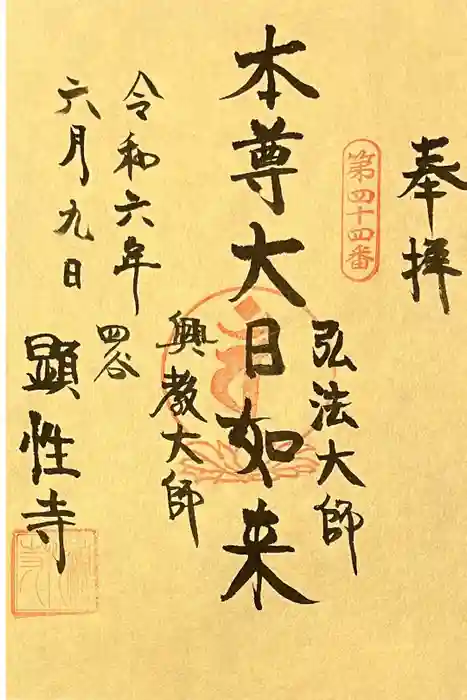 奉拝
第四十四番
弘法大師
本尊大日如来
興教大師
令和六年
六月九日
四谷
顕性寺